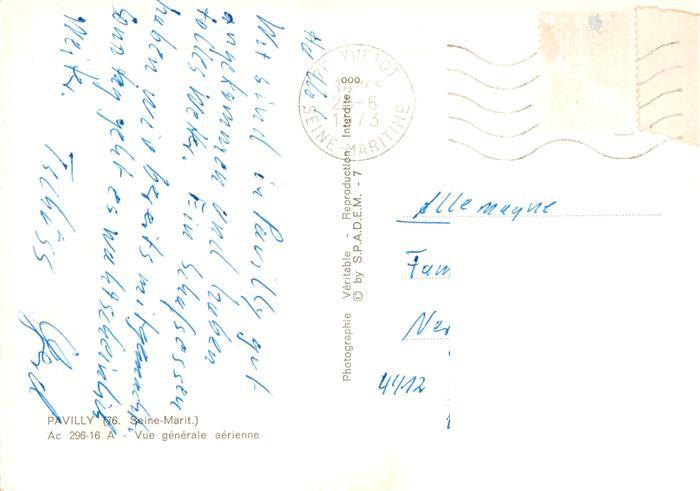 Hallo!
Wir sind in Pavilly gut
angekommen und haben
tolles Wetter. Ein Schafsessen
haben wir bereits mitgemacht.
Sonntag geht es wahrscheinlich
weiter.
Tschüss
Gerd
PAVILLY (76. Seine-Marit.)
Ac 296-16 A - Vue générale aérienne
Photographie Véritable - Reproduction Interdite
© by S.P.A.D.E.M. - 7
YVETOT
-6
1973
SEINE-MARITIME
Allemagne
Fam
4412